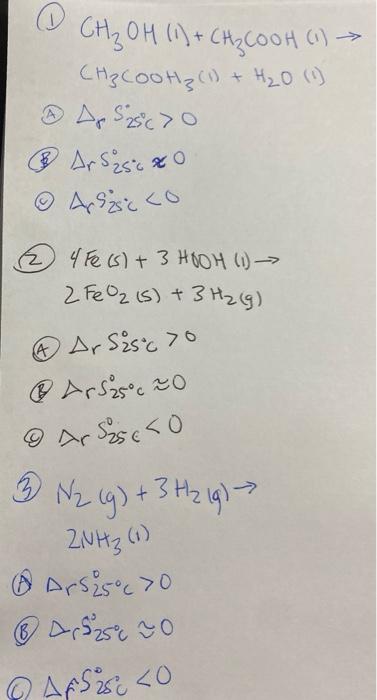 ① CH₃OH (l) + CH₃COOH (l) →
CH₃COOH₃ (l) + H₂O (l)
Ⓐ ΔrS°25°C > 0
Ⓑ ΔrS°25°C ≈ 0
Ⓒ ΔrS°25°C < 0
② 4 Fe (s) + 3 HOOH (l) →
2 FeO₂ (s) + 3 H₂ (g)
Ⓐ ΔrS°25°C > 0
Ⓑ ΔrS°25°C ≈ 0
Ⓒ ΔrS°25C < 0
③ N₂ (g) + 3 H₂ (g) →
2NH₃ (l)
Ⓐ ΔrS°25°C > 0
Ⓑ ΔrS°25°C ≈ 0
Ⓒ ΔrS°25°C < 0